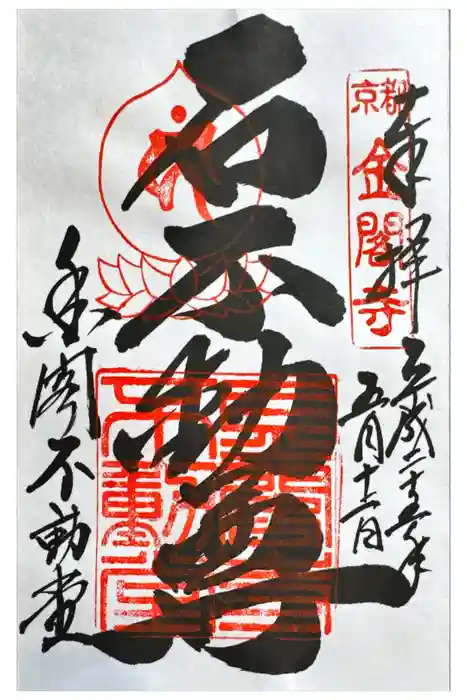 奉拝
京都
金閣寺
平成二十五年
五月十二日
石不動尊
金閣不動堂